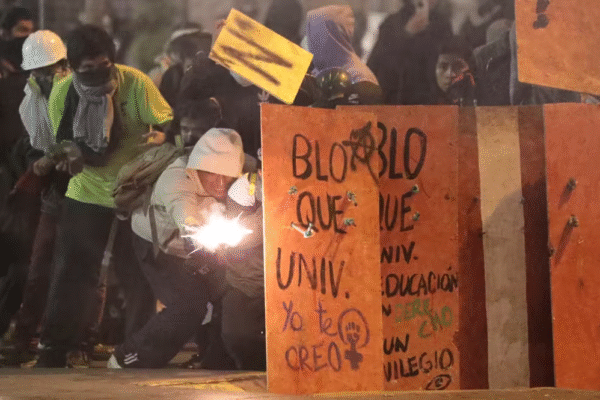 BLO
QUE
UNIV.
Yo te
CREO
BLO
QUE
UNIV.
EDUCACIÓN
DERE
CHO
UN
PRIVILEGIO